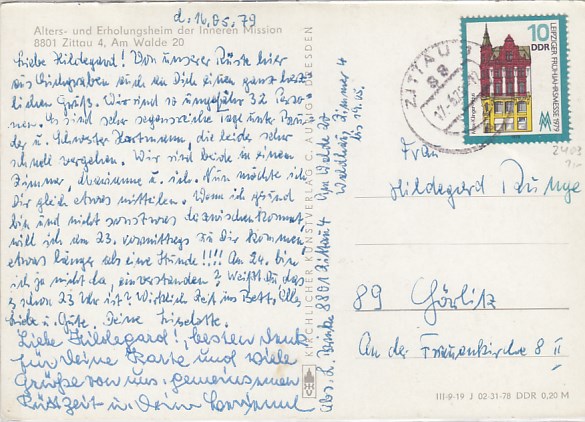 d. 16.05.79
Alters- und Erholungsheim der Inneren Mission
8801 Zittau 4, Am Walde 20
Liebe Hildegard! Von unserer Rüste hier
aus Lückendorf auch an Dich einen ganz herz-
lichen Gruß. Wir sind so ungefähr 32 Perso-
nen. Es sind sehr segensreiche Tage unter
u. Schwester Hartmann, die leider sehr
schnell vergehen. Wir sind beide in einem
Zimmer, Marianne u. ich. Nun möchte ich
Dir gleich etwas mitteilen. Wenn ich gesund
bin und nicht sonst was dazwischenkommt
will ich am 23. vormittags zu Dir kommen
etwas länger als eine Stunde!!!! Am 24. bin
ich ja nicht da, einverstanden? Weißt Du das
es schon 23 Uhr ist? Wirklich Zeit ins Bett. Alles
Liebe u. Gute. Deine Liselotte.
Liebe Hildegard! besten Dank
für Deine Karte und viele
Grüße von uns gemeinsamen
Rüstzeit u. Deine
KIRCHLICHER KUNSTVERLAG C. AURIG DRESDEN
Abs. 8801 Zittau 4 Am Walde 20
Waldhaus Zimmer 4
bis 19.05.
ZITTAU
88
17.-5.79
10
DDR
LEIPZIGER FRÜHJAHRSMESSE 1979
Frau
Hildegard Runge
89 Görlitz
An der Frauenkirche 8 II
III-9-19 J 02-31-78 DDR 0,20 M